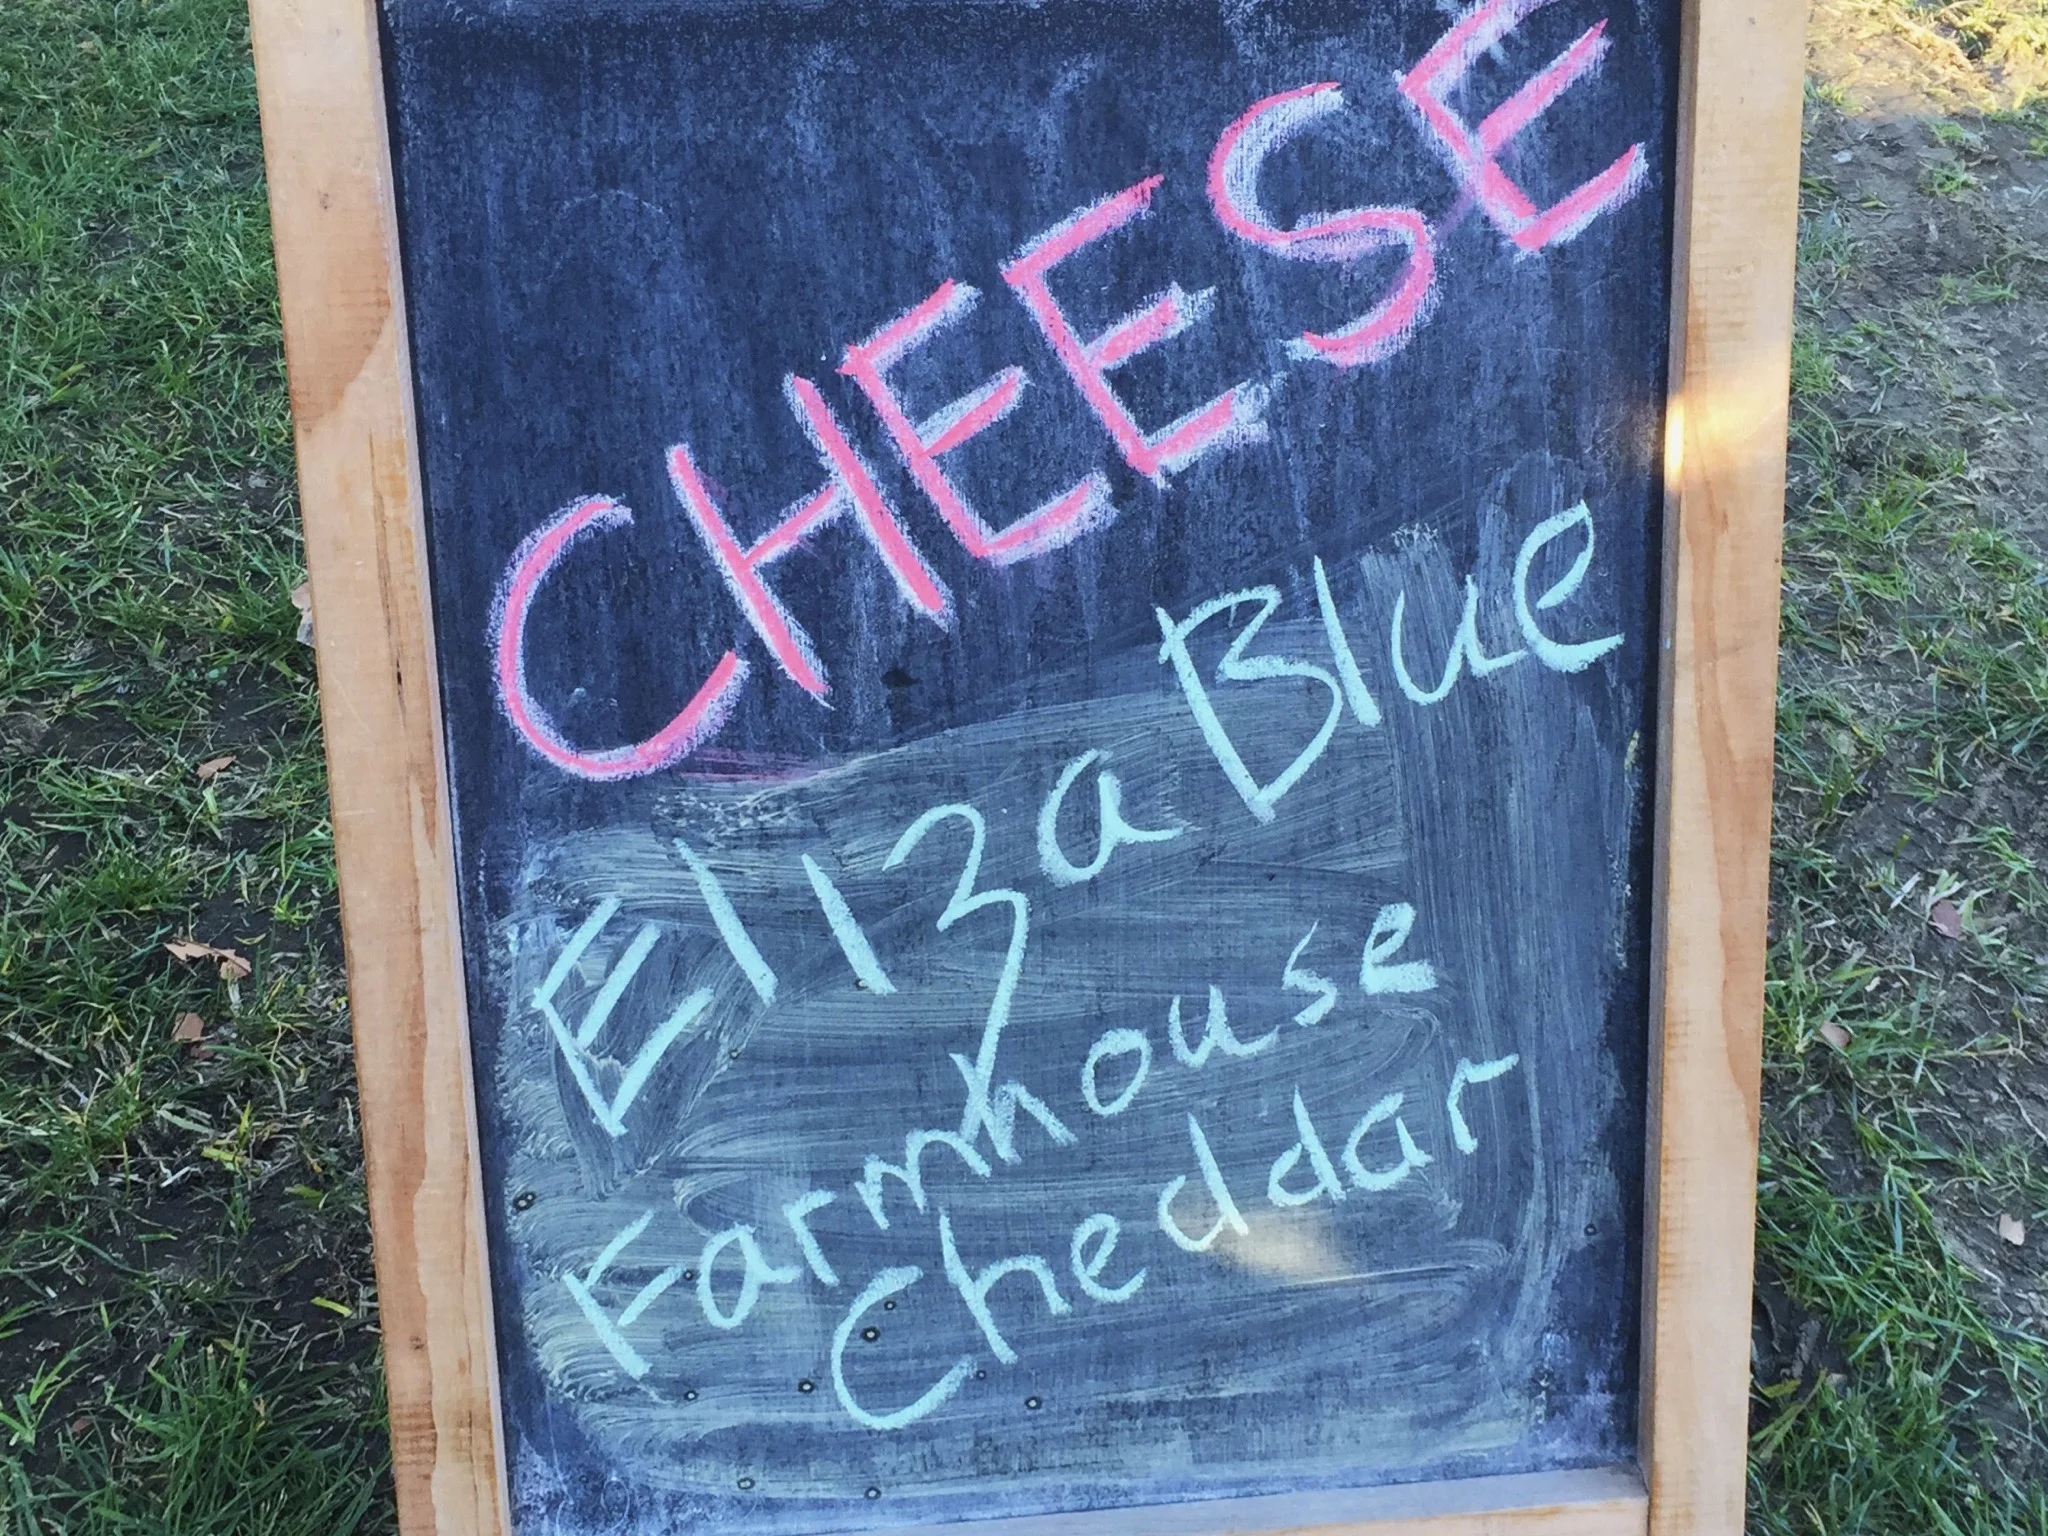 CHEESE
Eliza Blue
Farmhouse
Cheddar